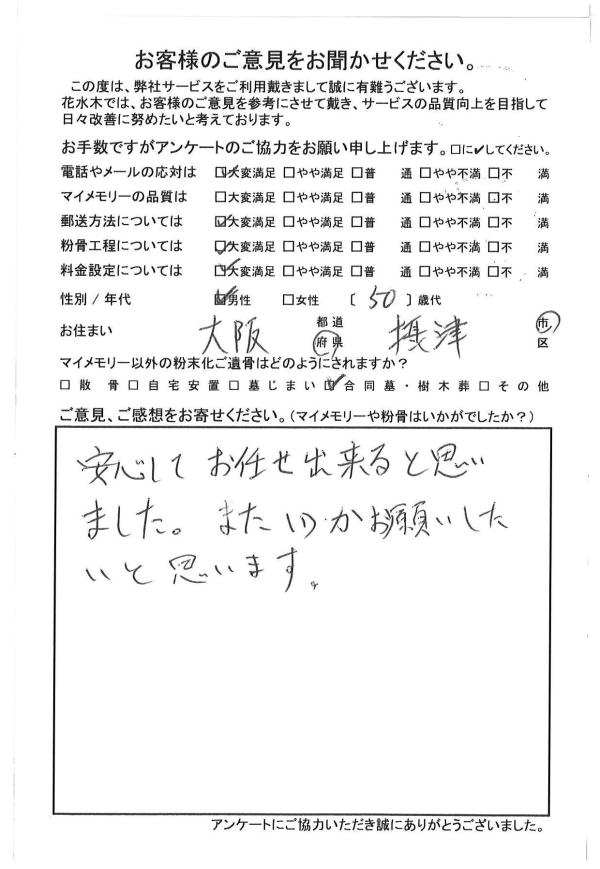 お客様のご意見をお聞かせください。
この度は、弊社サービスをご利用戴きまして誠に有難うございます。
花水木では、お客様のご意見を参考にさせて戴き、サービスの品質向上を目指して
日々改善に努めたいと考えております。
お手数ですがアンケートのご協力をお願い申し上げます。□に✓してください。
電話やメールの応対は ☑大変満足 □やや満足 □普 通 □やや不満 □不 満
マイメモリーの品質は □大変満足 □やや満足 □普 通 □やや不満 □不 満
郵送方法については ☑大変満足 □やや満足 □普 通 □やや不満 □不 満
粉骨工程については ☑大変満足 □やや満足 □普 通 □やや不満 □不 満
料金設定については ☑大変満足 □やや満足 □普 通 □やや不満 □不 満
性別/年代 ☑男性 □女性 〔 50 〕歳代
お住まい 大阪 都道府県 摂津 市区
マイメモリー以外の粉末化ご遺骨はどのようにされますか?
□散 骨□自宅安置□墓じまい☑合同墓・樹木葬□その他
ご意見、ご感想をお寄せください。(マイメモリーや粉骨はいかがでしたか?)
安心して お任せ出来ると思い
ました。またいつかお願いした
いと思います。
アンケートにご協力いただき誠にありがとうございました。